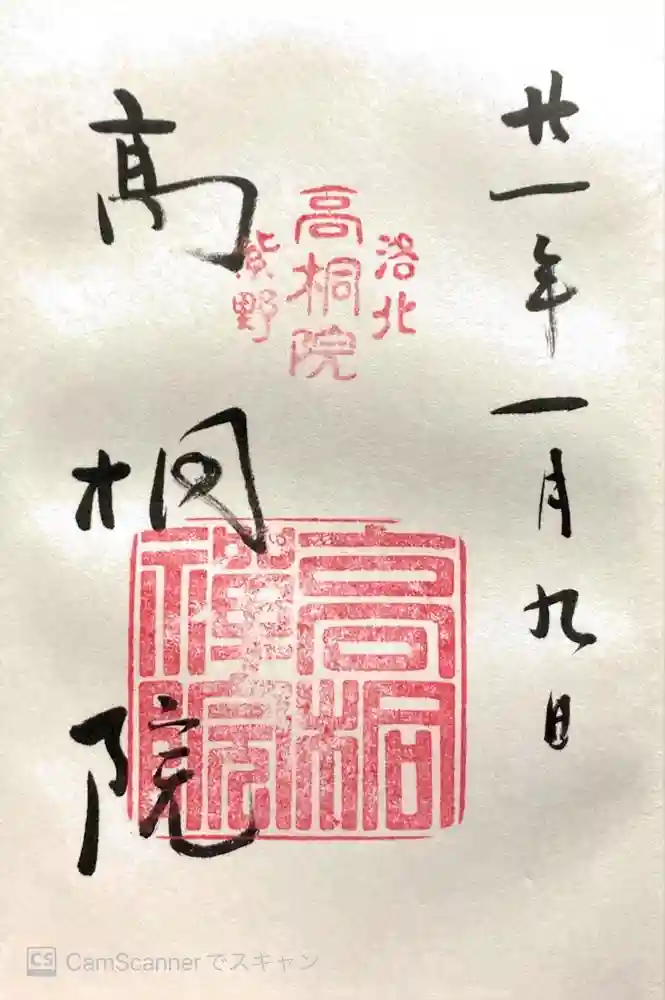 廿一年一月九日
洛北
高桐院
紫野
高桐院
高桐禅院
CS CamScannerでスキャン